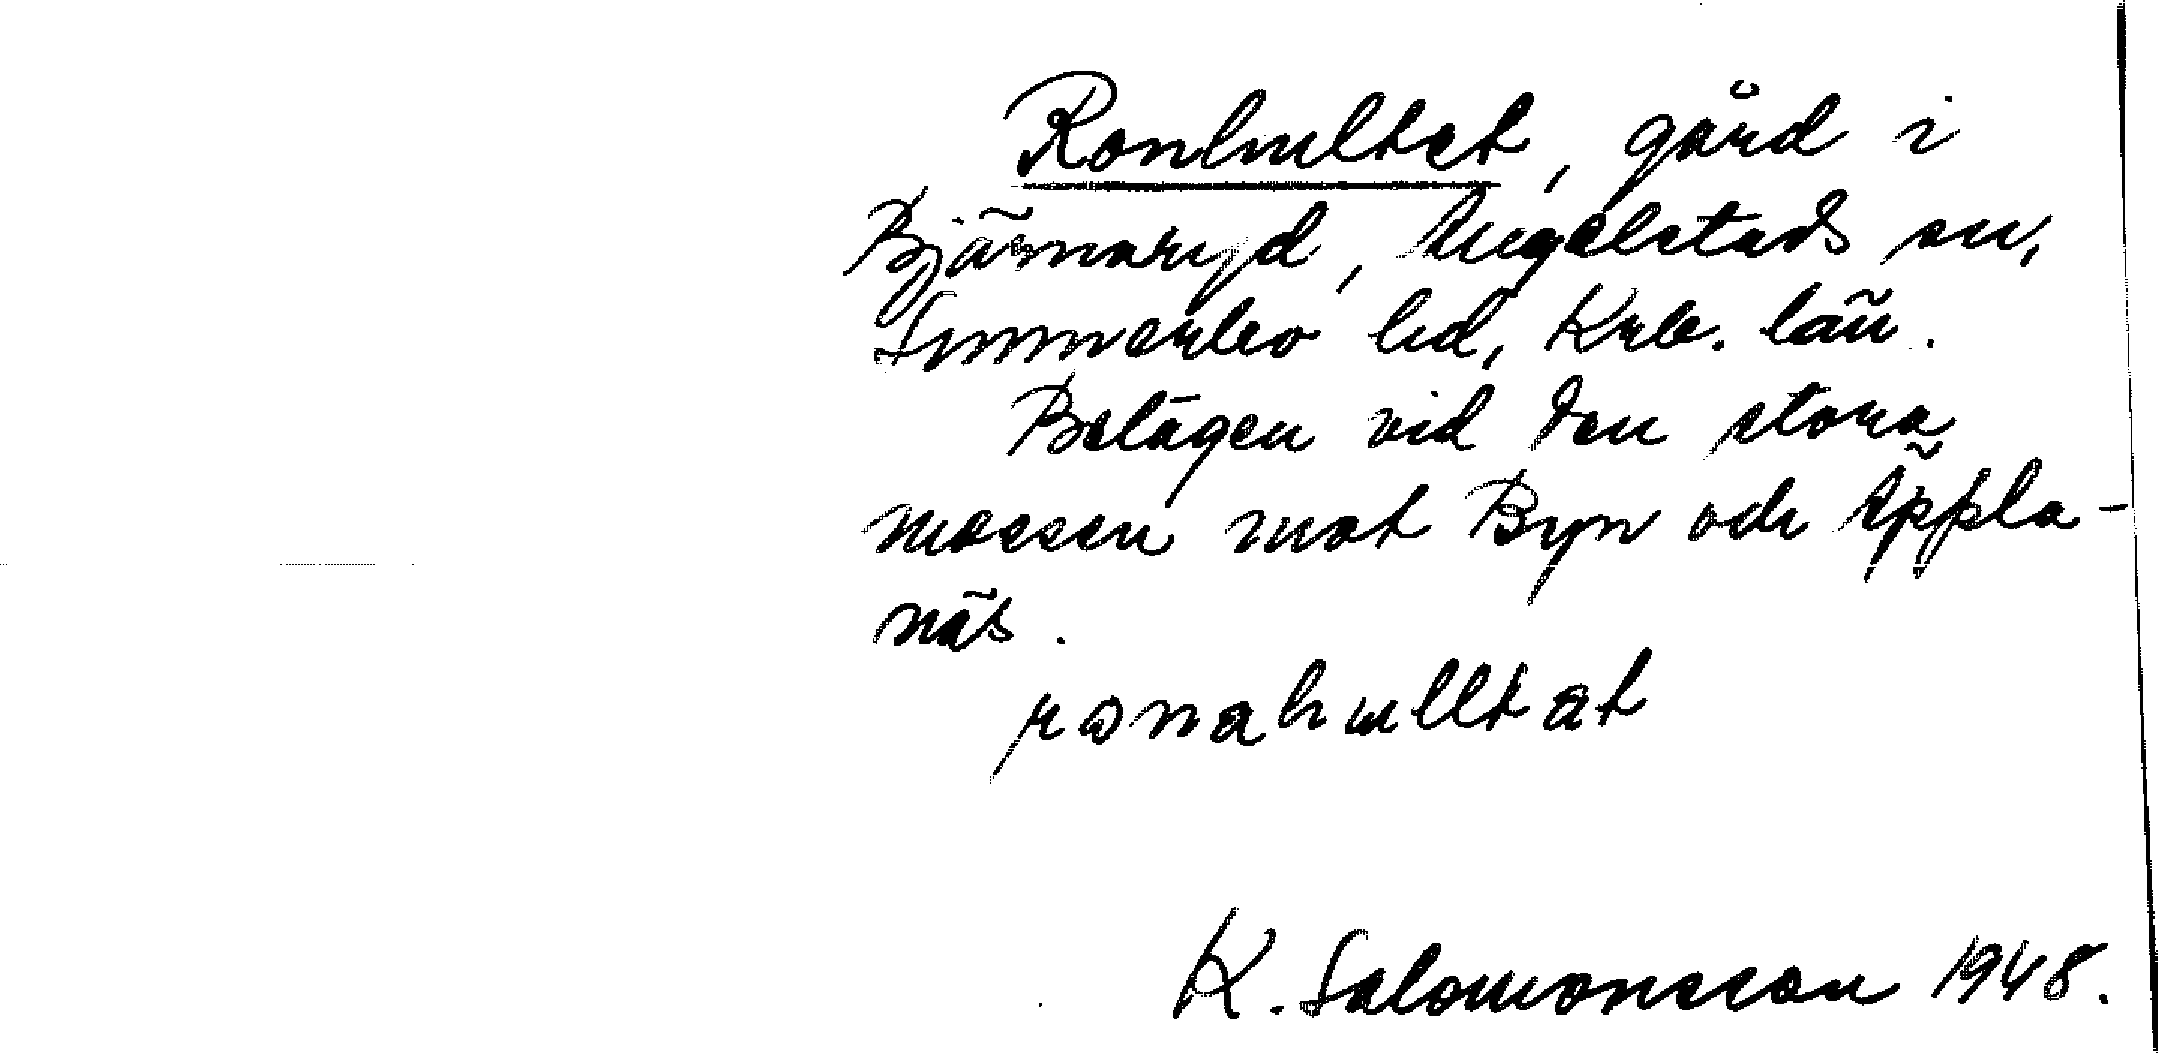 Ronhultet, gård i
Bjärnaryd, Ängelstads sn,
Sunnerbo hd, Krb. län.
Belägen vid den stora
mossen mot Byn och Äppla-
näs.
ronahulltat
K. Salomonsson 1948.